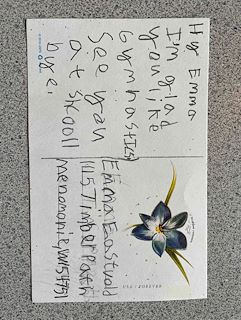 Hy Emma
I'm glad
you like
Gymnastics
See you
at shcooll
bye.
Emma Eastvold
1115 Timber Path
menomonie, WI 54751
USA FOREVER